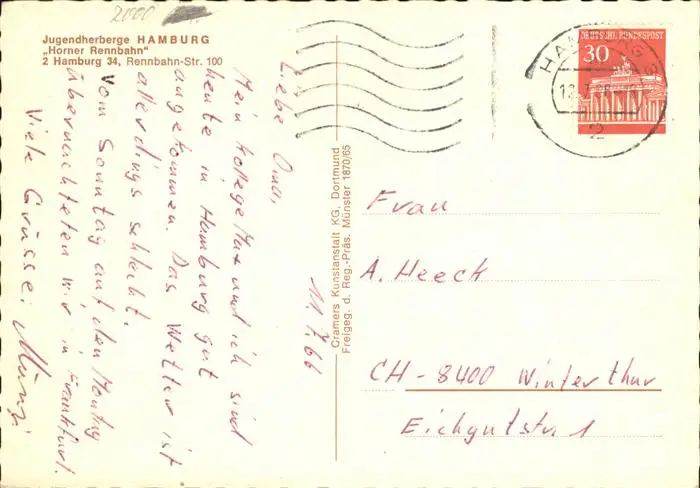 2000
Jugendherberge HAMBURG
„Horner Rennbahn“
2 Hamburg 34, Rennbahn-Str. 100
11.7.66
Liebe Oma,
Mein Kollege Max und ich sind
heute in Hamburg gut
angekommen. Das Wetter ist
allerdings schlecht.
Vom Sonntag auf den Montag
übernachteten wir in Frankfurt.
Viele Grüsse:
Cramers Kunstanstalt KG, Dortmund
Freigeg. d. Reg.-Präs. Münster 1870/65
DEUTSCHE BUNDESPOST
30
HAMBURG
2
Frau
A. Heeck
CH-8400 Winterthur
Eichgutstr. 1